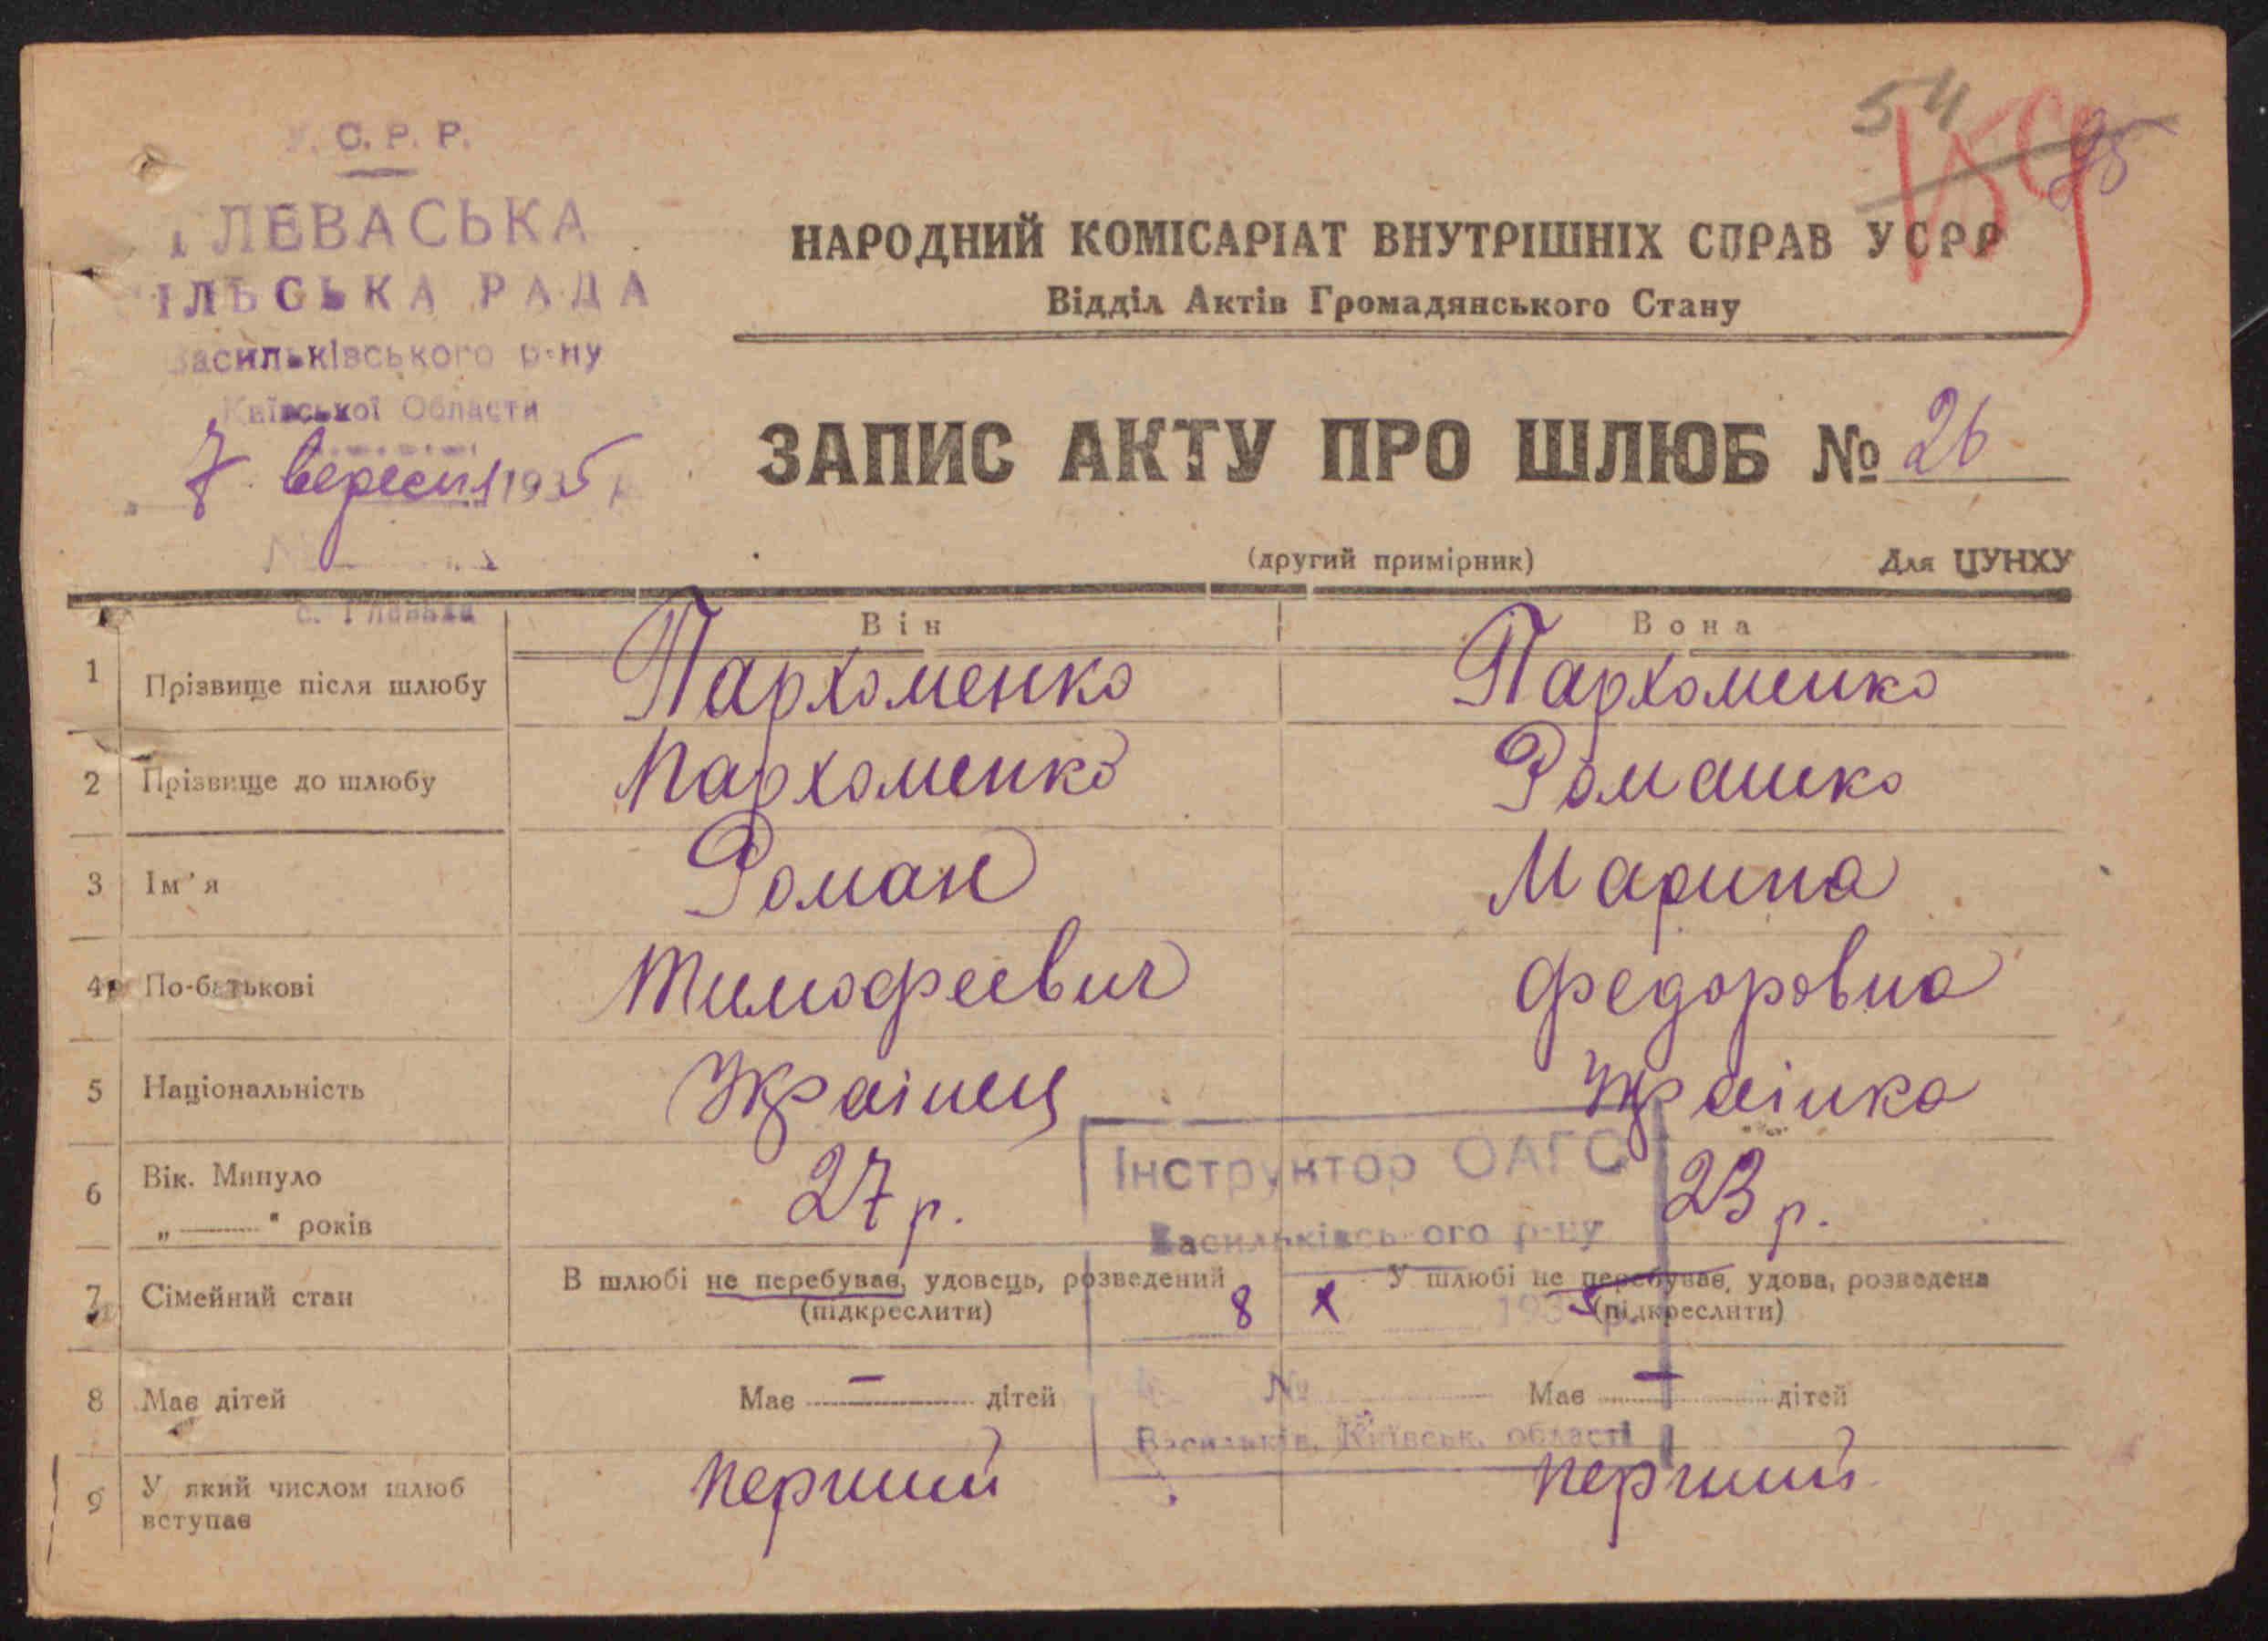 У. С. Р. Р.
ГЛЕВАСЬКА
ІЛЬСЬКА РАДА
Васильківського р-ну
Київської Области
7 вересня 1935 р
№
с. Глеваха
54
159
НАРОДНИЙ КОМІСАРІАТ ВНУТРІШНІХ СПРАВ УСРР
Відділ Актів Громадянського Стану
ЗАПИС АКТУ ПРО ШЛЮБ № 26
(другий примірник) Для ЦУНХУ
Він Вона
1 Прізвище після шлюбу Пархоменко Пархоменко
2 Прізвище до шлюбу Пархоменко Ромашко
3 Ім'я Роман Марина
4 По-батькові Тимофеевич Федоровна
5 Національність Украінец Украінка
6 Вік. Минуло „ " років 27 р. 23 р.
Інструктор ОАГС
Васильківського р-ну
7 Сімейний стан В шлюбі не перебуває, удовець, розведений У шлюбі не перебуває, удова, розведена
(підкреслити) 8 X 1935 р. (підкреслити)
8 Має дітей Має — дітей № Має — дітей
Васильків, Київськ. області
9 У який числом шлюб вступає перший перший